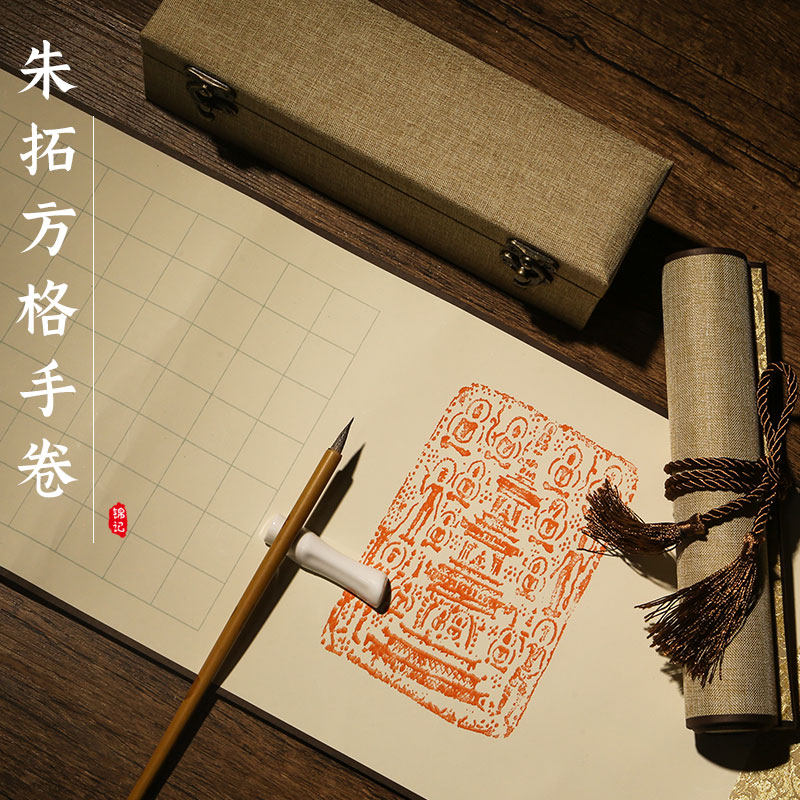 朱拓方格手卷
锦记